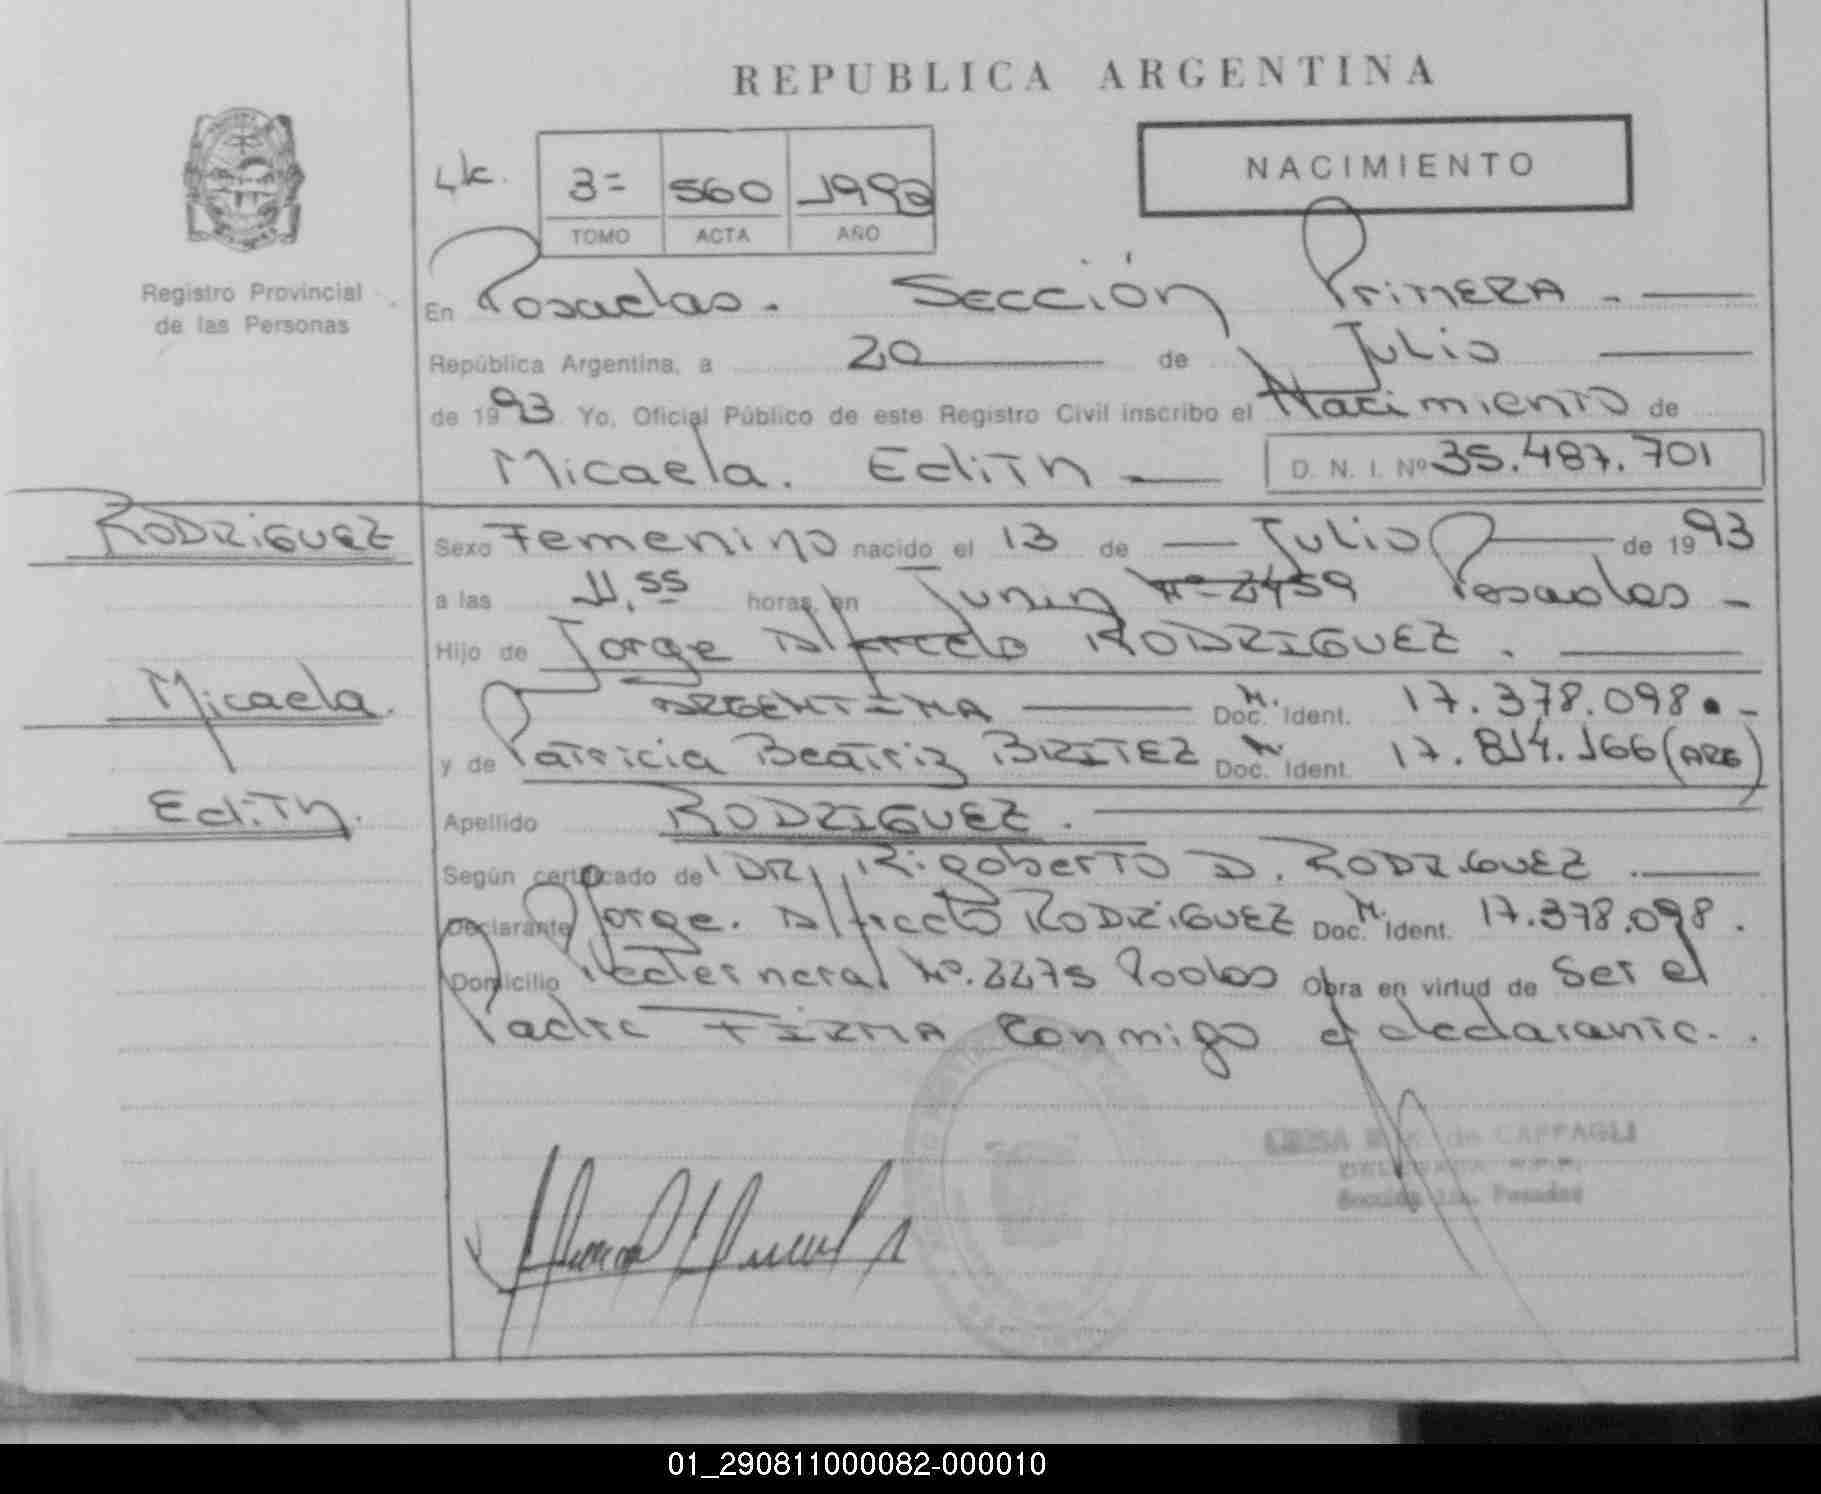 REPUBLICA ARGENTINA
NACIMIENTO
3= 560 1993
TOMO ACTA AÑO
Registro Provincial
de las Personas
En Posadas. Sección Primera -
República Argentina, a 20 de Julio
de 1993 Yo, Oficial Público de este Registro Civil inscribo el Nacimiento de
Micaela. Edith D. N. I. Nº 35.487.701
RODRIGUEZ
Sexo Femenino nacido el 13 de Julio de 1993
a las 11,55 horas, en Junin Nº 2459 Posadas -
Hijo de Jorge Alfredo RODRIGUEZ.
Micaela.
ARGENTINA M. Doc. Ident. 17.378.098.-
y de Patricia Beatriz BRITEZ Doc. Ident. 17.814.166 (ARG)
Edith.
Apellido RODRIGUEZ.
Según certificado de DR, Rigoberto D. RODRIGUEZ.
Declarante Jorge. Alfredo RODRIGUEZ M. Doc. Ident. 17.378.098.
Domicilio Nº. 2275 Obra en virtud de Ser el
Padre FIRMA Conmigo el declarante..
de CAFFAGLI
Posadas
01_290811000082-000010